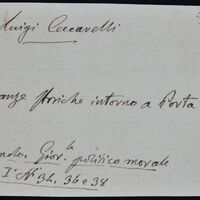 Luigi Ceccarelli
storiche intorno a Porta
Gior. politico morale
I° Nⁱ 34, 36 e 38